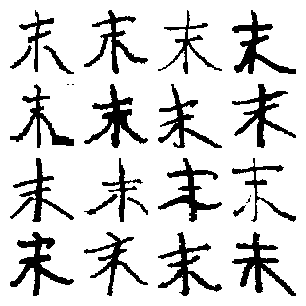 末末末末
末末末末
末末末末
末末末末